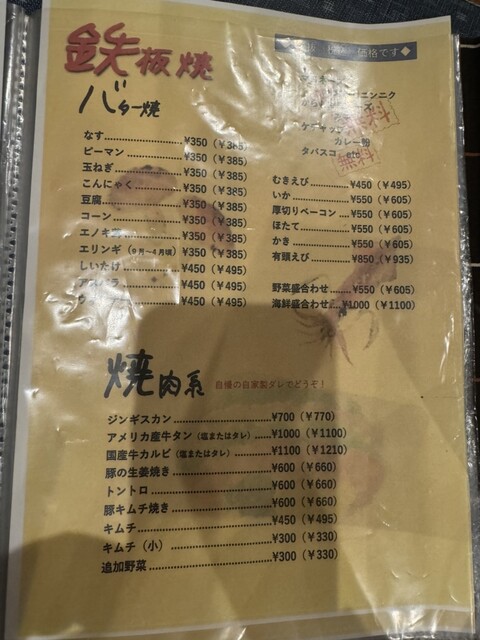 鉄板焼
価格です◆
バター焼
ニンニク
ケチャップ
カレー粉
タバスコ
無料
なす ¥350(¥385)
ピーマン ¥350(¥385)
玉ねぎ ¥350(¥385)
こんにゃく ¥350(¥385)
豆腐 ¥350(¥385)
コーン ¥350(¥385)
エノキ ¥350(¥385)
エリンギ(9月〜4月頃) ¥350(¥385)
しいたけ ¥450(¥495)
アスパラ ¥450(¥495)
¥450(¥495)
むきえび ¥450(¥495)
いか ¥550(¥605)
厚切りベーコン ¥550(¥605)
ほたて ¥550(¥605)
かき ¥550(¥605)
有頭えび ¥850(¥935)
野菜盛合わせ ¥550(¥605)
海鮮盛合わせ ¥1000(¥1100)
焼肉系 自慢の自家製ダレでどうぞ!
ジンギスカン ¥700(¥770)
アメリカ産牛タン(塩またはタレ) ¥1000(¥1100)
国産牛カルビ(塩またはタレ) ¥1100(¥1210)
豚の生姜焼き ¥600(¥660)
トントロ ¥600(¥660)
豚キムチ焼き ¥600(¥660)
キムチ ¥450(¥495)
キムチ(小) ¥300(¥330)
追加野菜 ¥300(¥330)